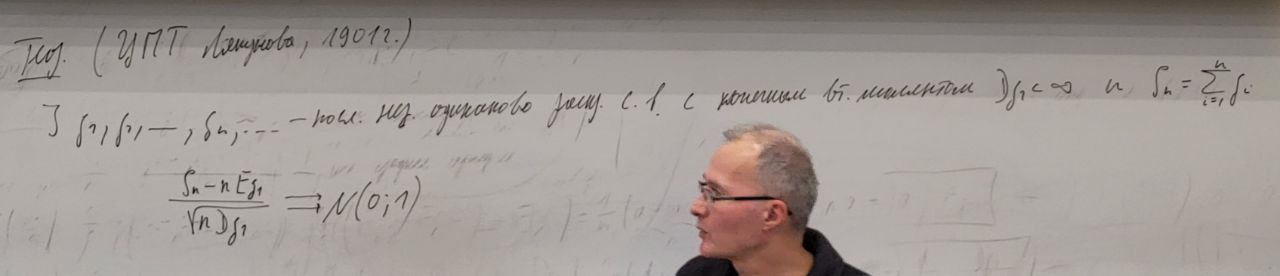 Теор. (ЦПТ Ляпунова, 1901г.)
] ξ₁, ξ₂, —, ξₙ, ... – посл. нез. одинаково распр. с.в. с конечным вт. моментом Dξ₁<∞ и Sₙ = ∑ᵢ₌₁ⁿ ξᵢ
(Sₙ – n Eξ₁)/√(n Dξ₁) ⇒ N(0;1)